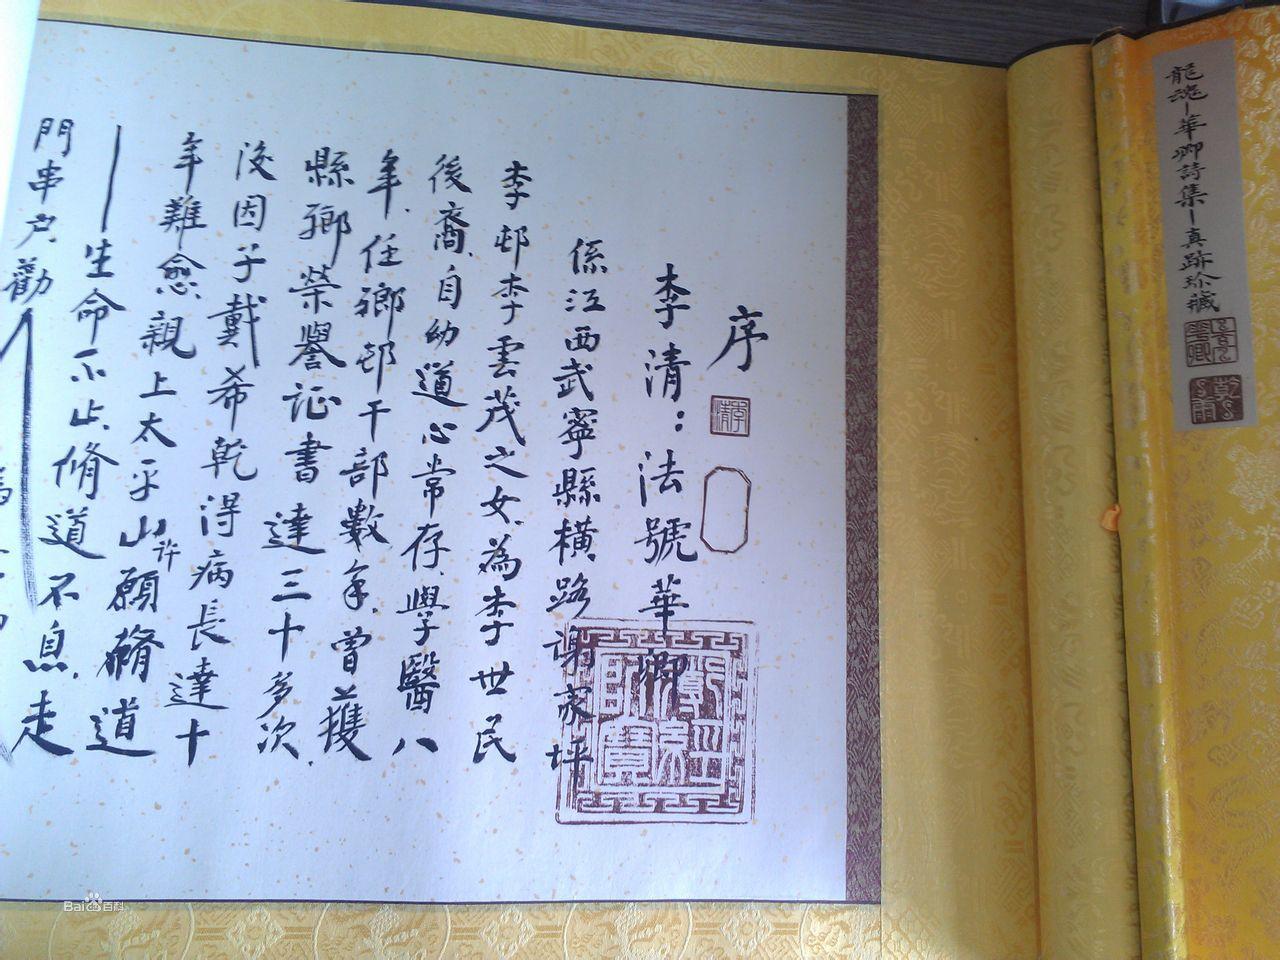 龍魂－華卿詩集－真跡珍藏
序
李清
李清：法號華卿
係江西武寧縣橫路謝家坪
李邨李雲茂之女、為李世民
後裔、自幼道心常存、學醫八
年、任鄉邨干部數年、曾獲
縣鄉榮譽证書達三十多次、
後因子戴希乾得病長達十
年難愈、親上太平山许願脩道
－生命不止、脩道不息、走
門串户、勸
Bai百科